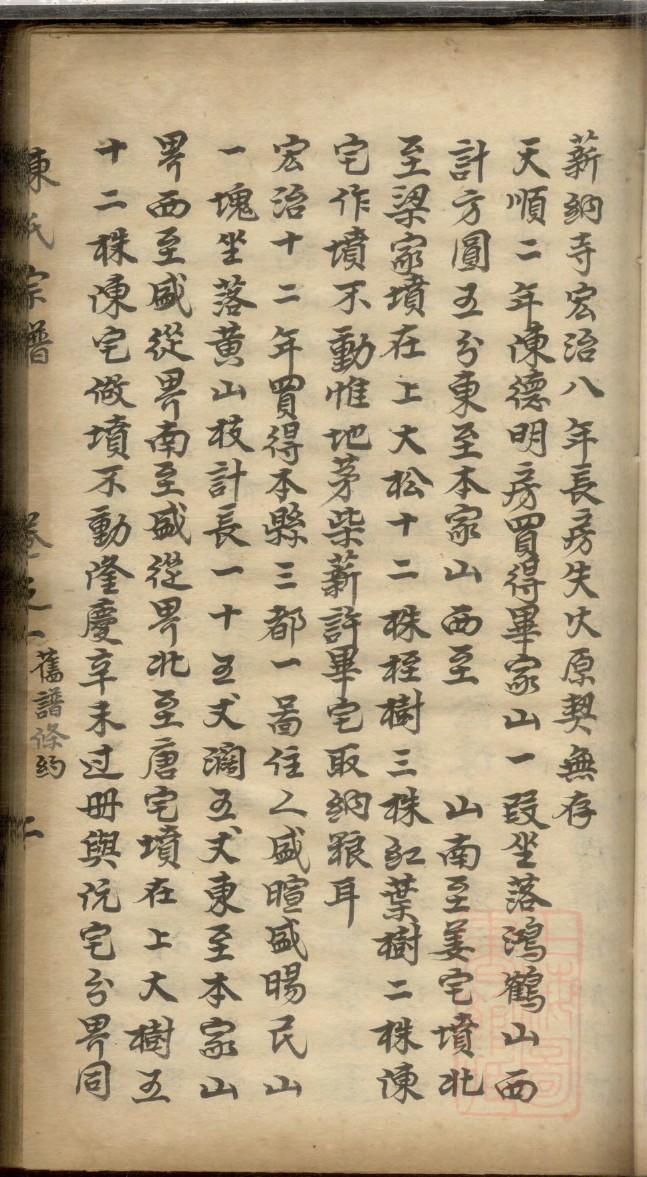 薪納寺宏治八年長房失火原契無存
天順二年陳德明房買得畢家山一段坐落鴻鶴山西
計方圓五分東至本家山西至　山南至姜宅墳北
至梁家墳在上大松十二株桎樹三株紅葉樹二株陳
宅作墳不動惟地茅柴薪許畢宅取納粮耳
宏治十二年買得本縣三都一啚住人盛暄盛暘民山
一塊坐落黄山枝計長一十五丈濶五丈東至本家山
界西至盛從界南至盛從界北至唐宅墳在上大樹五
十二株陳宅做墳不動隆慶辛未过册與伉宅分界同
陳氏宗譜　卷之一　舊譜條約　二